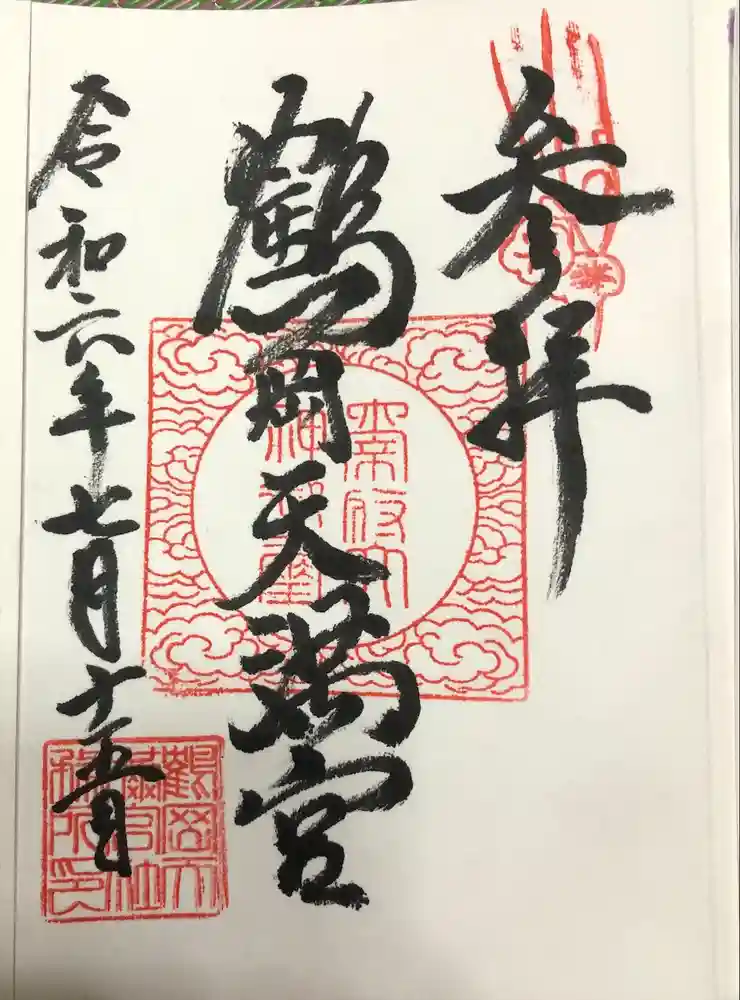 参拝
鶴岡天満宮
令和六年七月十五日